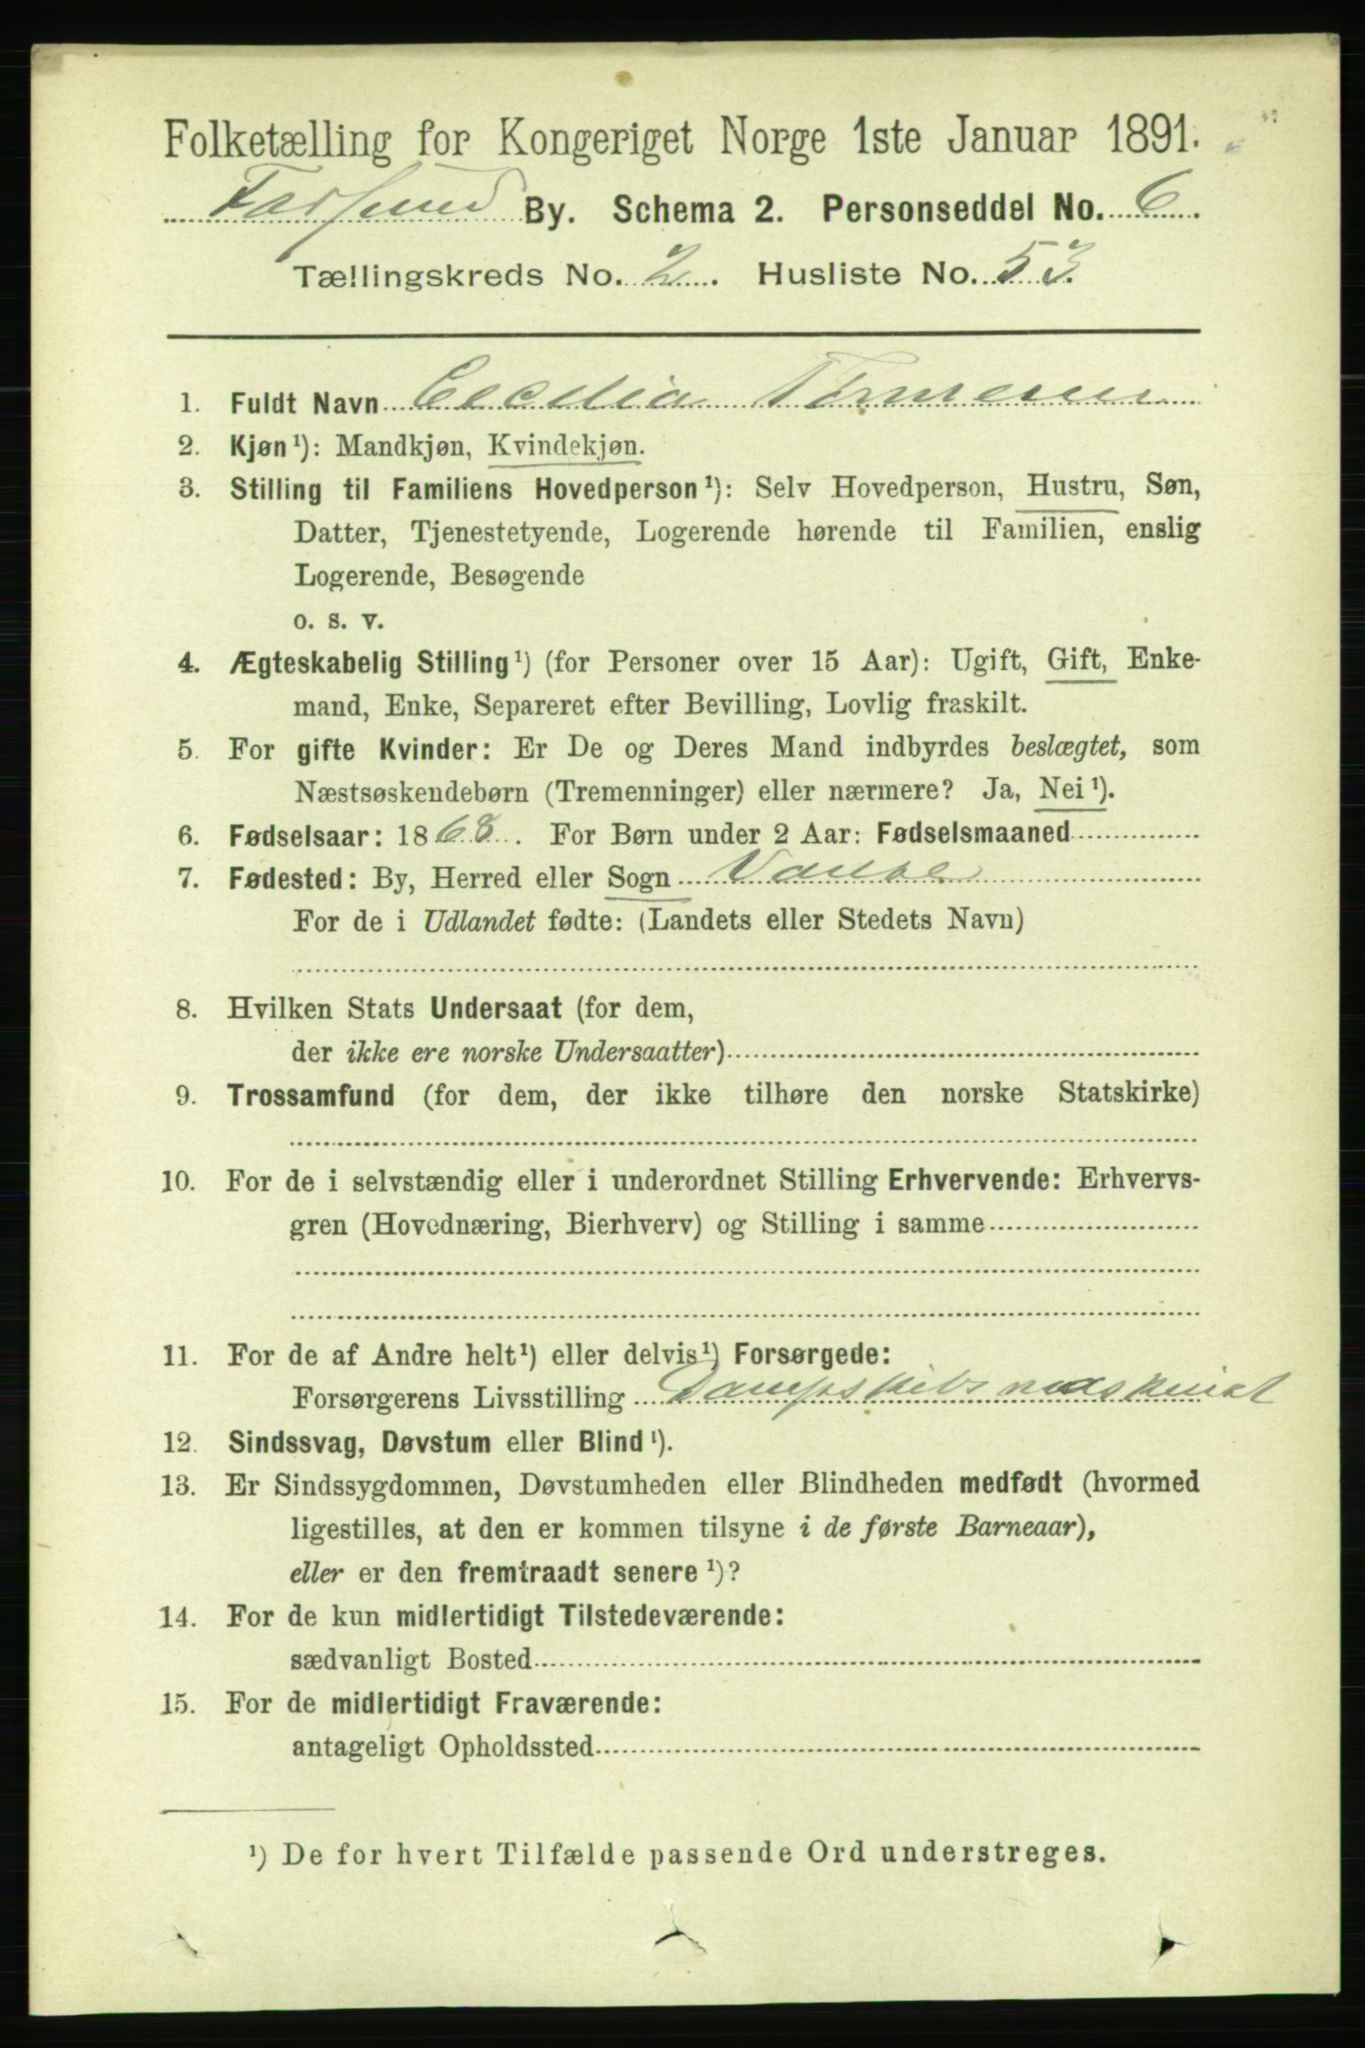 Folketælling for Kongeriget Norge 1ste Januar 1891.
Farsund By. Schema 2. Personseddel No. 6
Tællingskreds No. 2. Husliste No. 53.
1. Fuldt Navn Cecilia
2. Kjøn¹): Mandkjøn, Kvindekjøn.
3. Stilling til Familiens Hovedperson¹): Selv Hovedperson, Hustru, Søn,
Datter, Tjenestetyende, Logerende hørende til Familien, enslig
Logerende, Besøgende
o. s. v.
4. Ægteskabelig Stilling¹) (for Personer over 15 Aar): Ugift, Gift, Enke-
mand, Enke, Separeret efter Bevilling, Lovlig fraskilt.
5. For gifte Kvinder: Er De og Deres Mand indbyrdes beslægtet, som
Næstsøskendebørn (Tremenninger) eller nærmere? Ja, Nei¹).
6. Fødselsaar: 1868. For Børn under 2 Aar: Fødselsmaaned
7. Fødested: By, Herred eller Sogn Vanse
For de i Udlandet fødte: (Landets eller Stedets Navn)
8. Hvilken Stats Undersaat (for dem,
der ikke ere norske Undersaatter)
9. Trossamfund (for dem, der ikke tilhøre den norske Statskirke)
10. For de i selvstændig eller i underordnet Stilling Erhvervende: Erhvervs-
gren (Hovednæring, Bierhverv) og Stilling i samme
11. For de af Andre helt¹) eller delvis¹) Forsørgede:
Forsørgerens Livsstilling Dampskibsmaskinist
12. Sindssvag, Døvstum eller Blind¹).
13. Er Sindssygdommen, Døvstumheden eller Blindheden medfødt (hvormed
ligestilles, at den er kommen tilsyne i de første Barneaar),
eller er den fremtraadt senere¹)?
14. For de kun midlertidigt Tilstedeværende:
sædvanligt Bosted
15. For de midlertidigt Fraværende:
antageligt Opholdssted
¹) De for hvert Tilfælde passende Ord understreges.